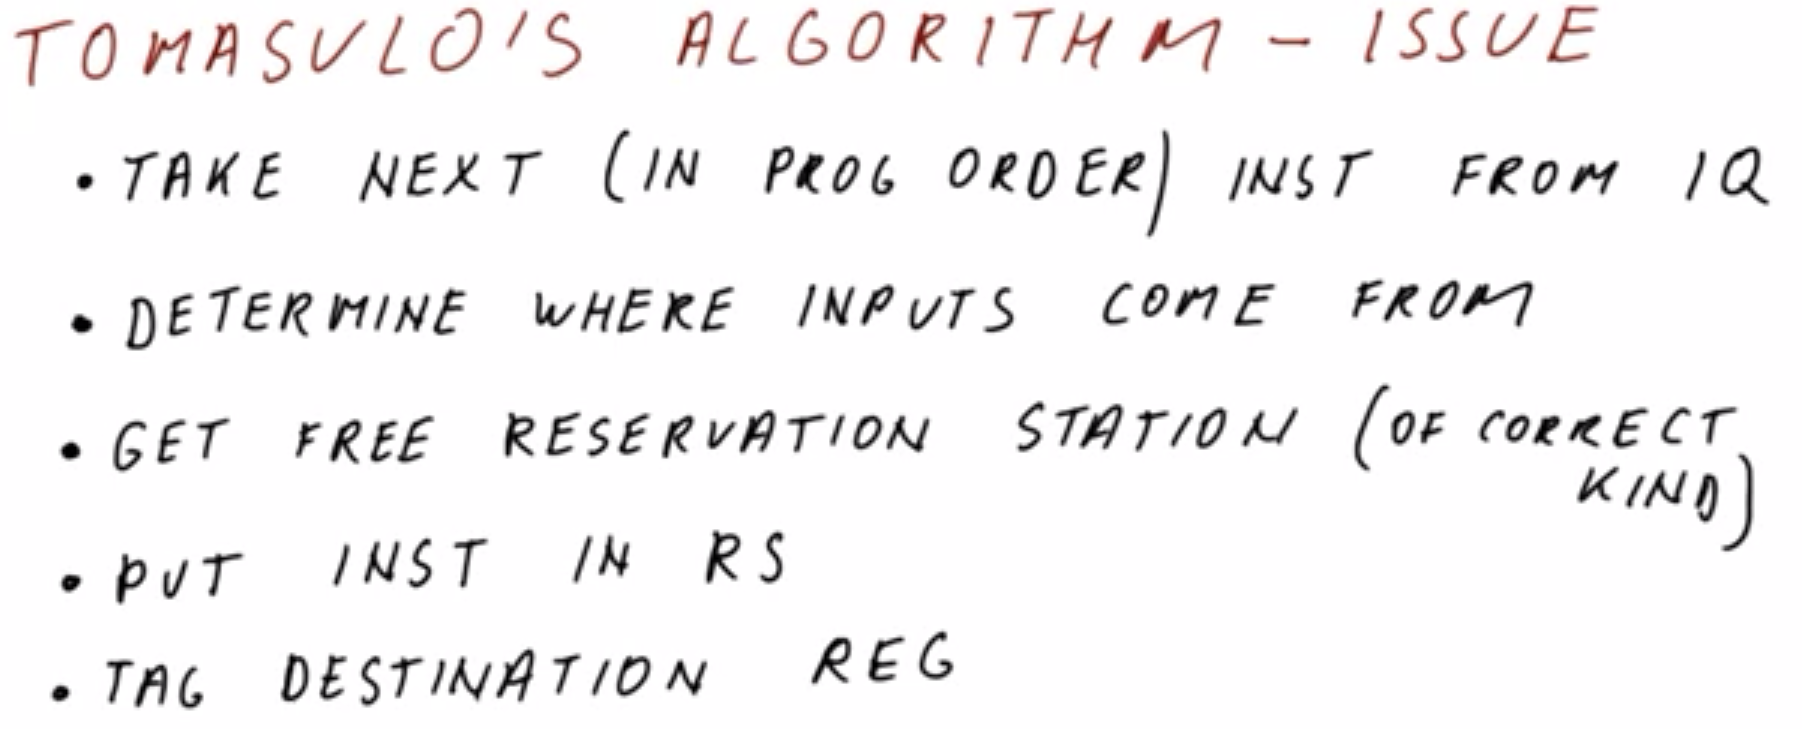 TOMASULO'S ALGORITHM - ISSUE
• TAKE NEXT (IN PROG ORDER) INST FROM IQ
• DETERMINE WHERE INPUTS COME FROM
• GET FREE RESERVATION STATION (OF CORRECT
KIND)
• PUT INST IN RS
• TAG DESTINATION REG